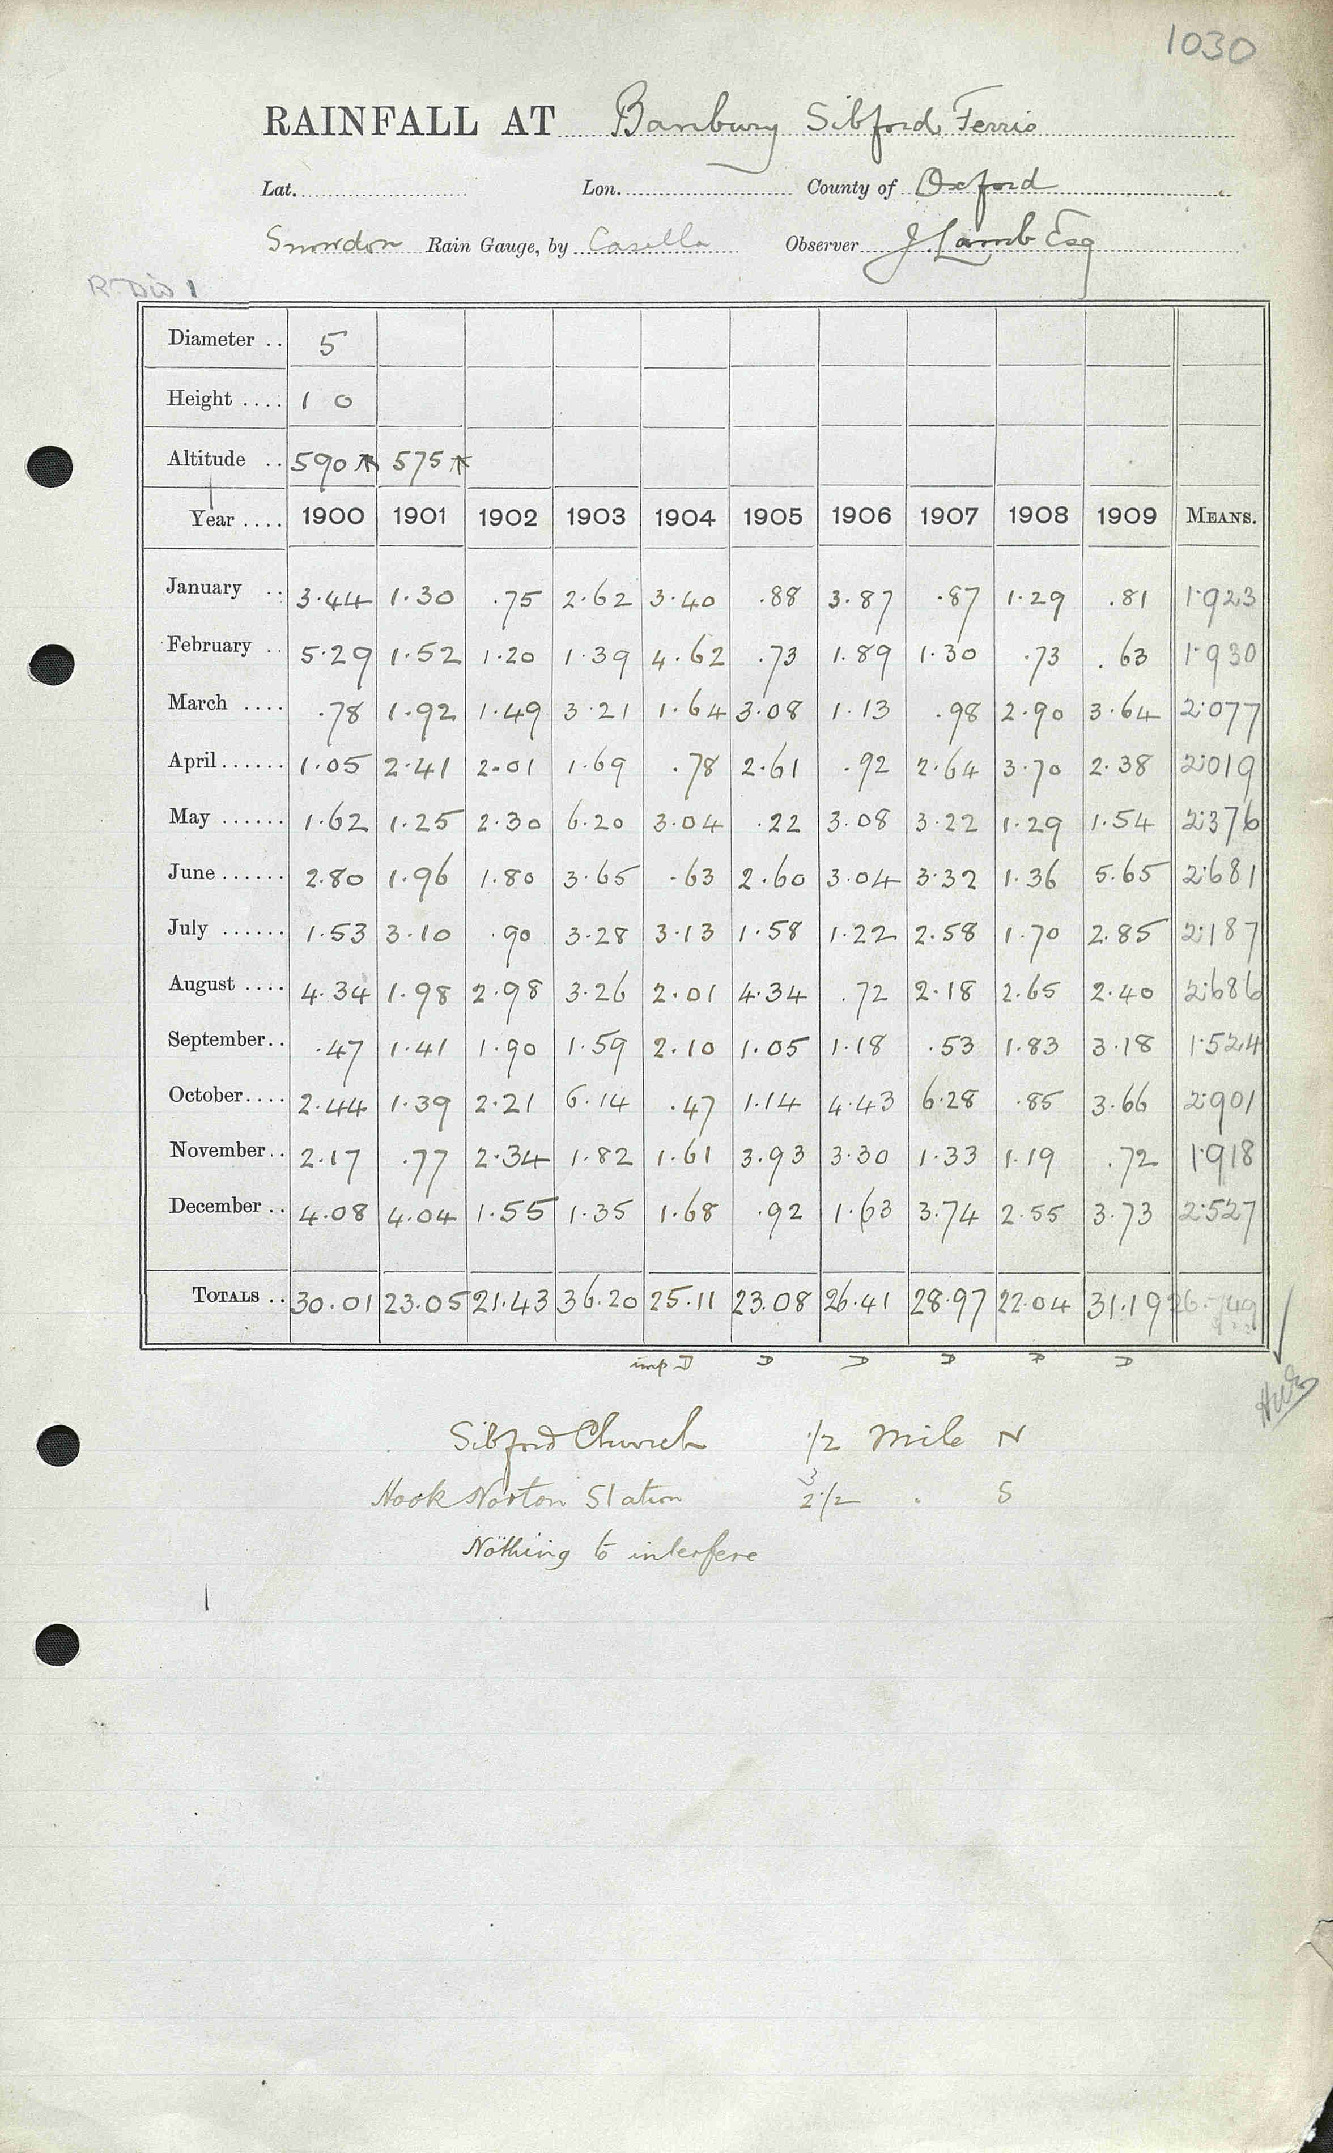 1030
RAINFALL AT Banbury Sibford Ferris
Lat. Lon. County of Oxford
Snowdon Rain Gauge, by Casella Observer J Lamb Esq
Diameter .. 5
Height .... 1 0
Altitude .. 590 575
Year .... 1900 1901 1902 1903 1904 1905 1906 1907 1908 1909 MEANS.
January .. 3.44 1.30 .75 2.62 3.40 .88 3.87 .87 1.29 .81 1.923
February .. 5.29 1.52 1.20 1.39 4.62 .73 1.89 1.30 .73 .63 1.930
March .... .78 1.92 1.49 3.21 1.64 3.08 1.13 .98 2.90 3.64 2.077
April ...... 1.05 2.41 2.01 1.69 .78 2.61 .92 2.64 3.70 2.38 2.019
May ...... 1.62 1.25 2.30 6.20 3.04 .22 3.08 3.22 1.29 1.54 2.376
June ...... 2.80 1.96 1.80 3.65 .63 2.60 3.04 3.32 1.36 5.65 2.681
July ...... 1.53 3.10 .90 3.28 3.13 1.58 1.22 2.58 1.70 2.85 2.187
August .... 4.34 1.98 2.98 3.26 2.01 4.34 .72 2.18 2.65 2.40 2.686
September.. .47 1.41 1.90 1.59 2.10 1.05 1.18 .53 1.83 3.18 1.524
October.... 2.44 1.39 2.21 6.14 .47 1.14 4.43 6.28 .85 3.66 2.901
November.. 2.17 .77 2.34 1.82 1.61 3.93 3.30 1.33 1.19 .72 1.918
December .. 4.08 4.04 1.55 1.35 1.68 .92 1.63 3.74 2.55 3.73 2.527
TOTALS .. 30.01 23.05 21.43 36.20 25.11 23.08 26.41 28.97 22.04 31.19 26.749
imp D D D D D D
Sibford Church 1/2 Mile N
Hook Norton Station 2 1/2 . S
Nothing to interfere